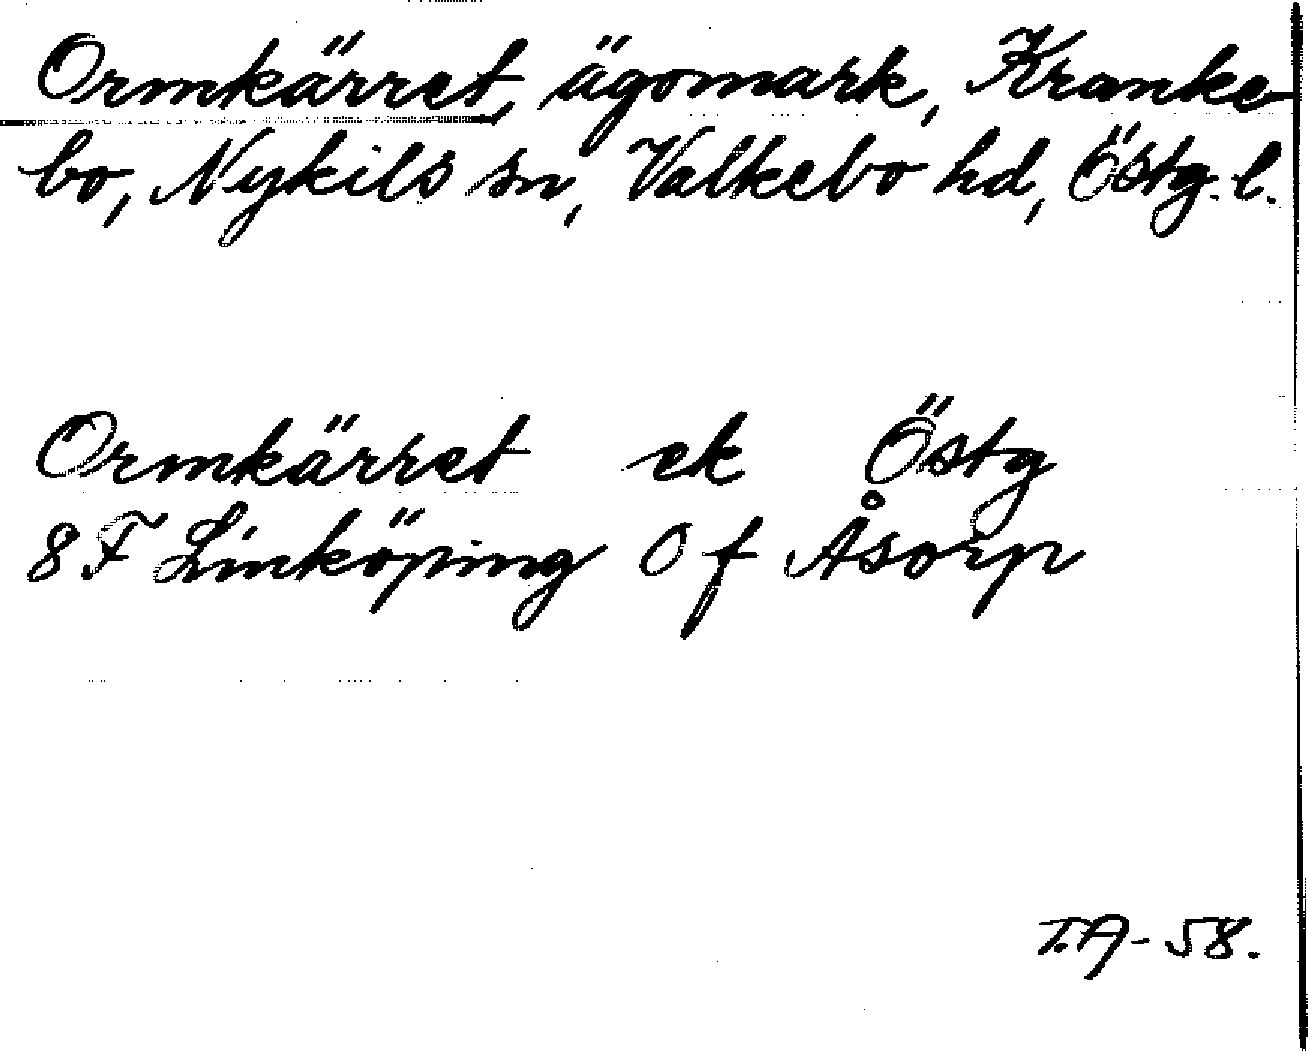 Ormkärret, ägomark, Kranke-
bo, Nykils sn, Valkebo hd, Östg. l.
Ormkärret ek Östg
8 F Linköping 0 f Åsorp
T.A-58.